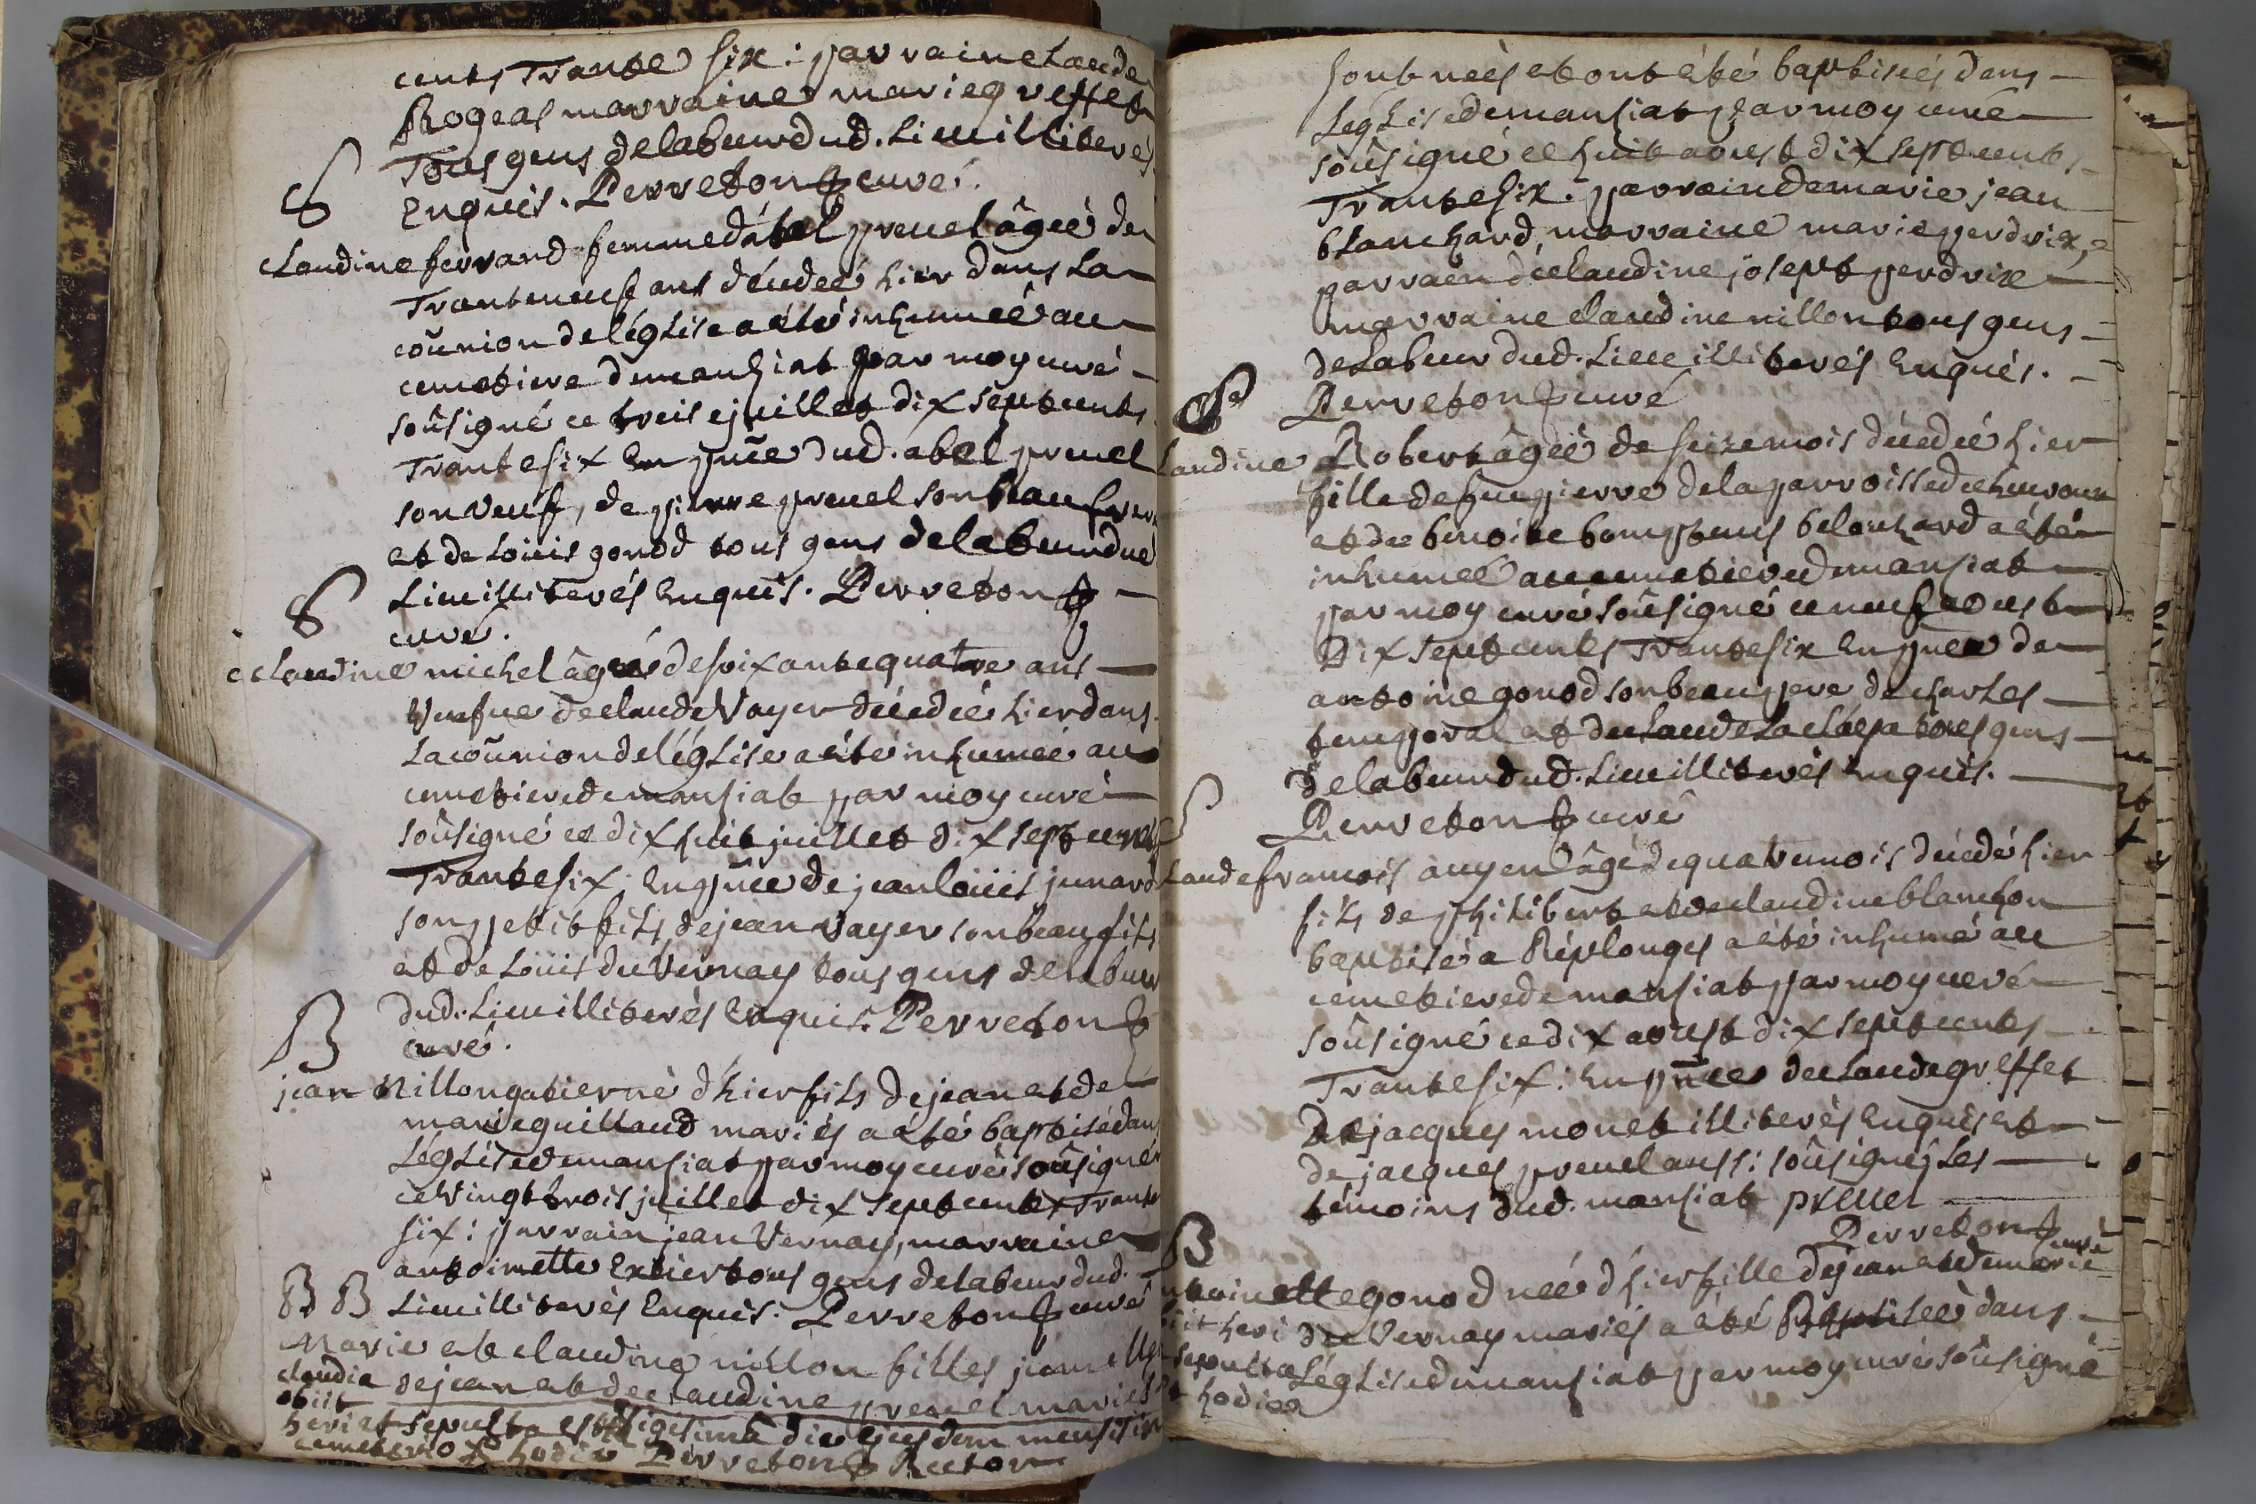 cents Trante six : parrain claude
Rogeas marraine marie greffet
Tous gens de labeur dud. lieu illiterés
Enquis. Perreton curé.
S
claudine ferrand femme d'abel preuel âgée de
Trante neuf ans décédée hier dans la
coũnion de l'églize a été inhumée au
cemetiere de manziat par moy curé
soûsigné ce treise juillet dix sept cents
Trante six En pñce dud. abel preuel
son veuf, de pierre preuel son beau frere
et de loüis gonod tous gens de labeur dud
lieu illiterés Enquis. Perreton
curé.
S
claudine michel âgée de soixante quatre ans
Veufue de claude Vayer décédée hier dans
la coũnion de l'églize a été inhumée au
cemetiere de manziat par moy curé
soûsigné ce dix huit juillet dix sept cents
Trante six ; En pñce de jean loüis junard
son petit fils de jean vayer son beau fils
et de loüis du Vernay tous gens de labeur
dud. lieu illiterés Enquis. Perreton
curé.
B
jean Nillon gatier né d'hier fils de jean et de
marie guillaud mariés a été baptisé dans
l'églize de manziat par moy curé soûsigné
ce Vingt trois juillet dix sept cents Trante
six : parrain jean Vernay, marraine
antoinette Exsier tous gens de labeur dud.
lieu illiterés Enquis. Perreton curé
B B
Marie et claudine nillon filles jumelles
de jean et de claudine preuel mariés
claudia obiit
heri et sepulta est Vigesima die ejusdem mensis in
cemeterio hodie Perreton Rector
sont nées et ont été baptisées dans
l'églize de manziat par moy curé
soûsigné ce huit aoust dix sept cents
Trante six. parrain de marie jean
blanchard, marraine marie perdrix,
parrain de claudine josept perdrix
marraine claudine nillon tous gens
de labeur dud. lieu illiterés Enquis.
Perreton curé
S
claudine Robert âgée de seize mois décédée hier
fille de feu pierre de la parroisse de
et de benoite bompteus belouzard a été
inhumée au cemetiere de manziat
par moy curé soûsigné ce neuf aoust
Dix sept cents Trante six En pñce de
antoine gonod son beau pere de charles
temporal et de claude tous gens
de labeur dud. lieu illiterés Enquis.
Perreton curé
S
claude francois auyen âgé de quatre mois décédé hier
fils de philibert et de claudine blanchon
baptisé a Réplonges a été inhumé au
cemetiere de manziat par moy curé
soûsigné ce dix aoust dix sept cents
Trante six : En pñce de claude greffet
De jacques monet illiterés Enquis et
de jacques preuel aussi soûsigné, les
témoins dud. manziat preuel
Perreton curé
B
antoinette gonod née d'hier fille de jean et de marie
du Vernay mariés a été Baptisée dans
l'églize de manziat par moy curé soûsigné
obiit heri
sepulta
hodie